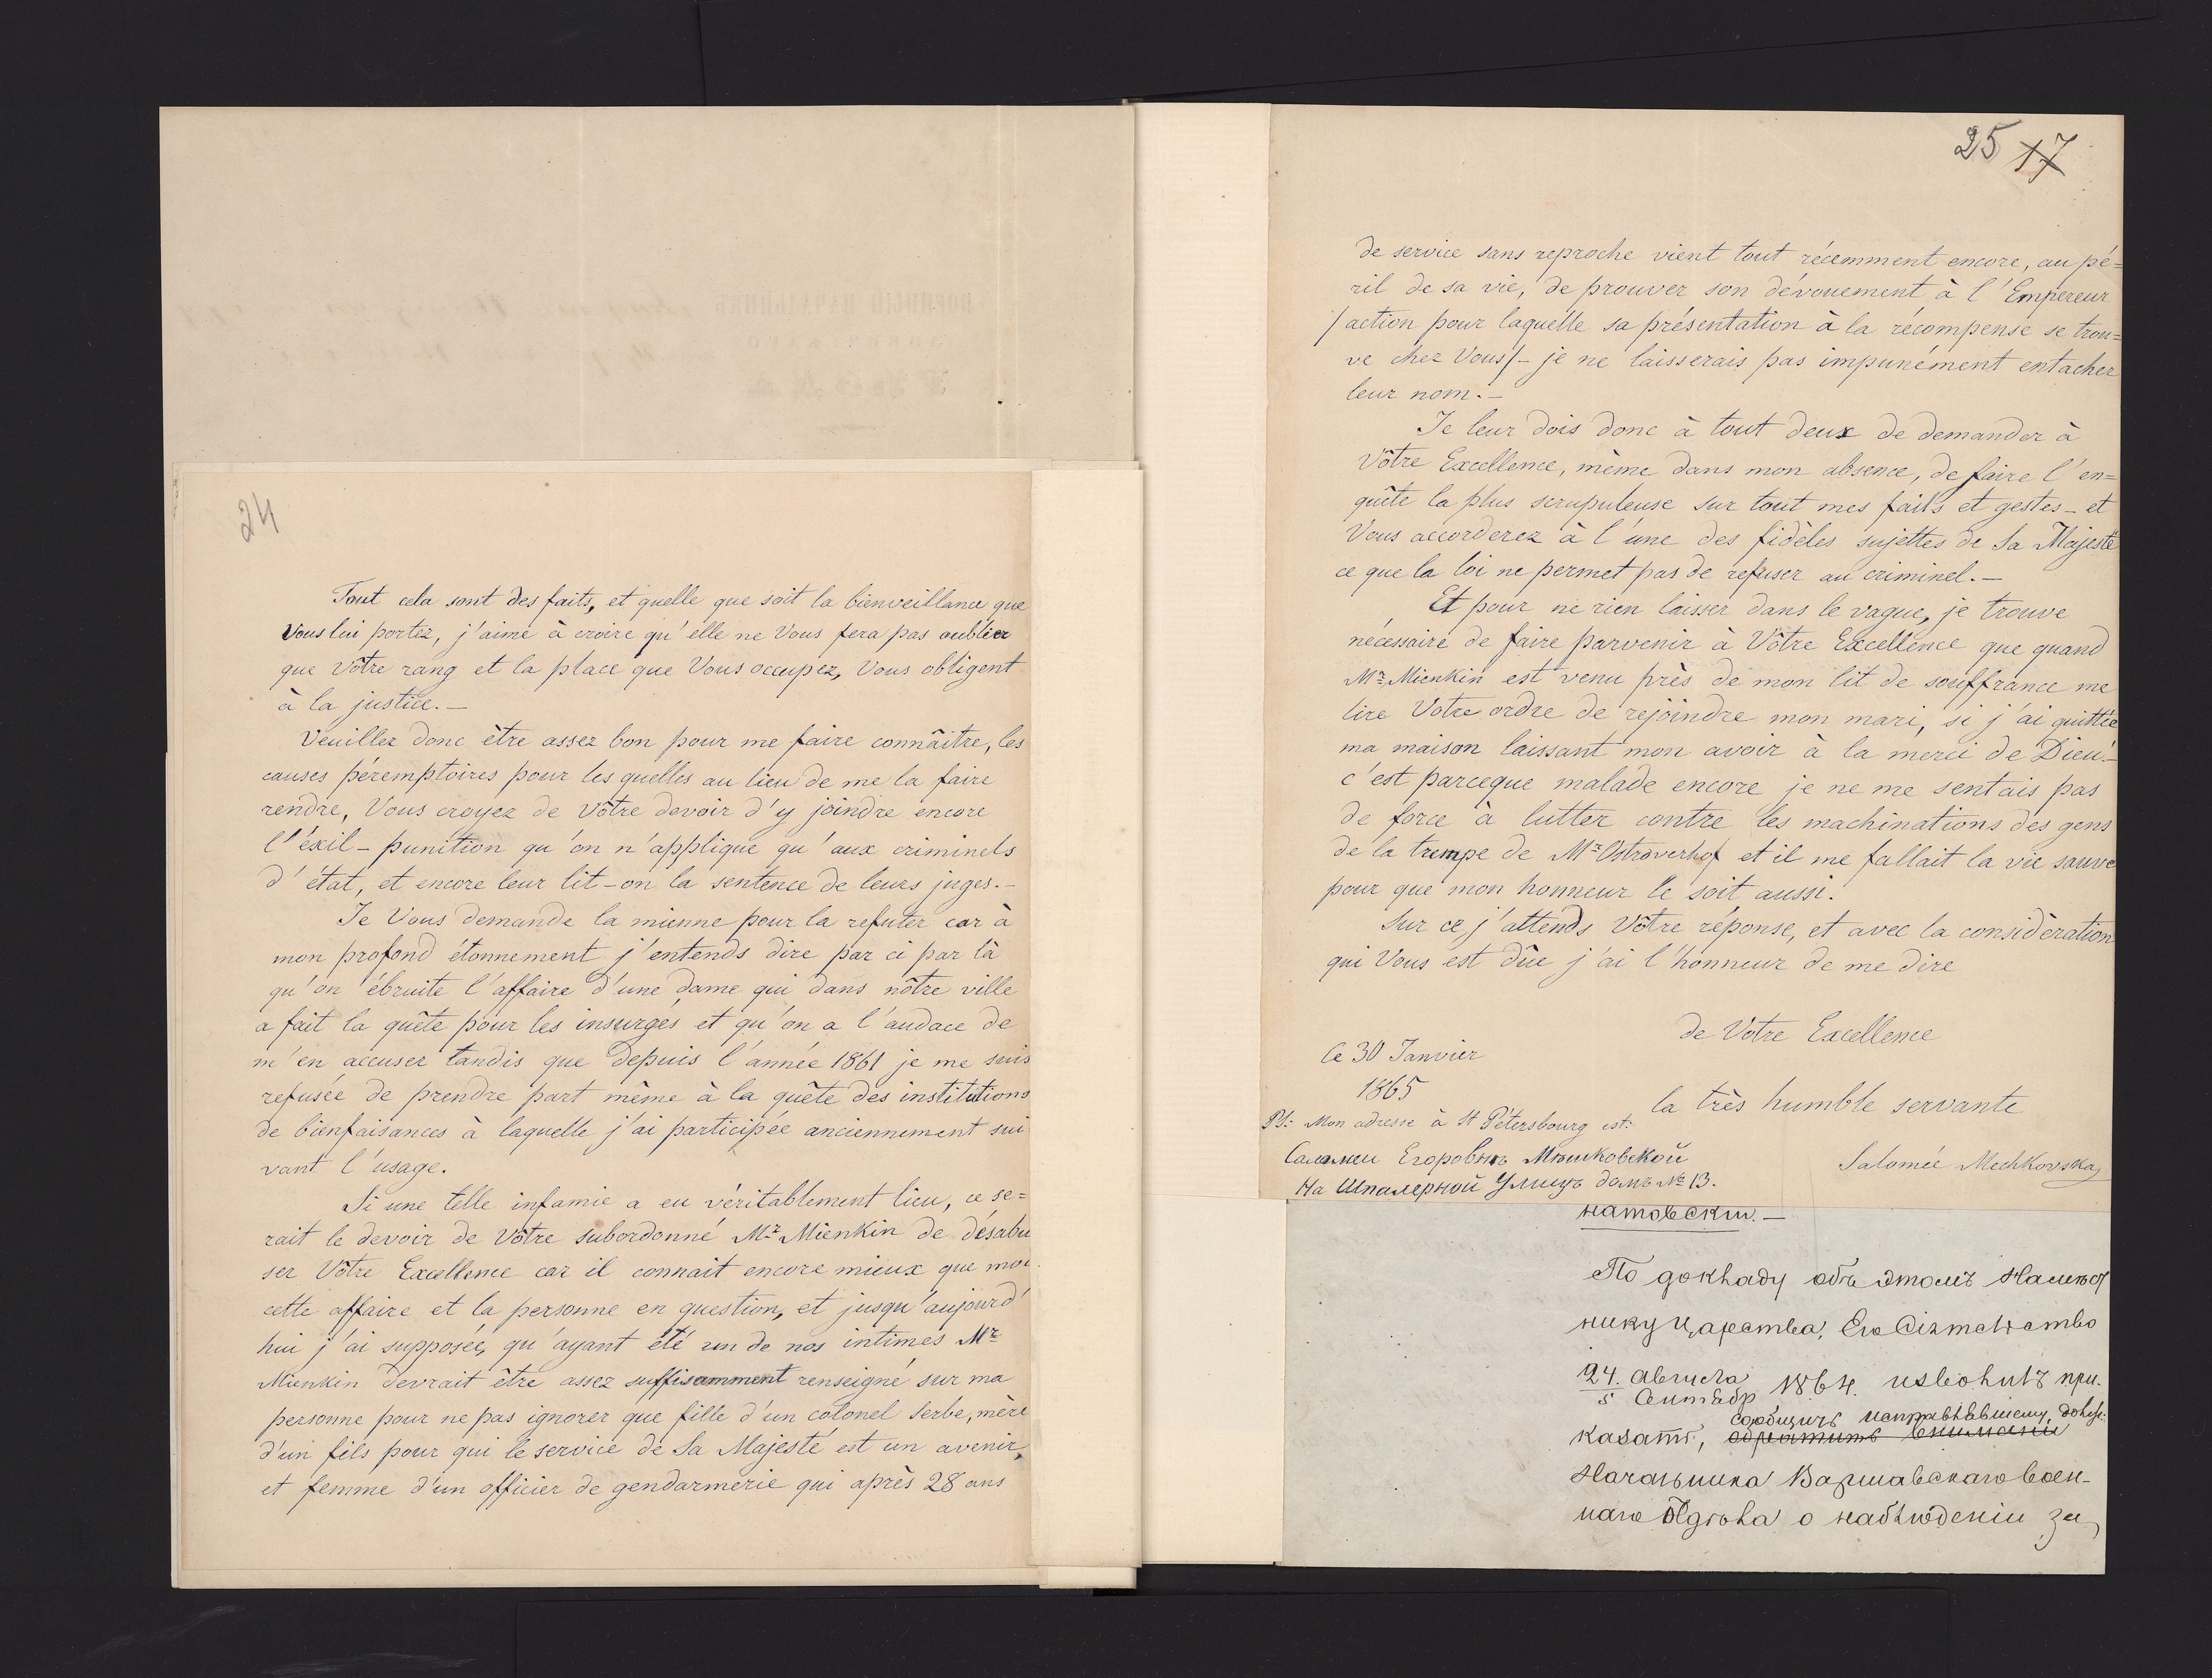 24
Tout cela sont des faits, et quelle que soit la bienveillance que
Vous lui portez, j'aime à croire qu'elle ne Vous fera pas oublier
que Vôtre rang et la place que Vous occupez, Vous obligent
à la justice.—
Veuillez donc être assez bon pour me faire connâitre, les
causes péremptoires pour les quelles au lieu de me la faire
rendre, Vous croyez de Vôtre devoir d'y joindre encore
l'éxil — punition qu'on n'applique qu'aux criminels
d'état, et encore leur lit-on la sentence de leurs juges.—
Je Vous demande la mienne pour la refuter car à
mon profond étonnement j'entends dire par ci par là
qu'on ébruite l'affaire d'une dame qui dans nôtre ville
a fait la quête pour les insurgés et qu'on a l'audace de
m'en accuser tandis que depuis l'année 1861 je me suis
refusée de prendre part même à la quête des institutions
de bienfaisances à laquelle j'ai participée anciennement sui
vant l'usage.
Si une telle infamie a eu véritablement lieu, ce se=
rait le devoir de Vôtre subordonné Mr Mienkin de désabu
ser Vôtre Excellence car il connait encore mieux que moi
cette affaire et la personne en question, et jusqu'aujourd'
hui j'ai supposée, qu'ayant été un de nos intimes Mr
Mienkin devrait être assez suffisamment renseigné sur ma
personne pour ne pas ignorer que fille d'un colonel Serbe, mère
d'un fils pour qui le service de Sa Majesté est un avenir,
et femme d'un officier de gendarmerie qui après 28 ans
25 17
de service sans reproche vient tout récemment encore, au pé=
ril de sa vie, de prouver son dévouement à l'Empereur
/action pour laquelle sa présentation à la récompense se trou=
ve chez Vous/ — je ne laisserais pas impunément entacher
leur nom.—
Je leur dois donc à tout deux de demander à
Vôtre Excellence, même dans mon absence, de faire l'en=
quête la plus scrupuleuse sur tout mes faits et gestes — et
Vous accorderez à l'une des fidèles sujettes de Sa Majesté
ce que la loi ne permet pas de refuser au criminel.—
Et pour ne rien laisser dans le vague, je trouve
nécessaire de faire parvenir à Vôtre Excellence que quand
Mr Mienkin est venu près de mon lit de souffrance me
lire Votre ordre de rejoindre mon mari, si j'ai quittée
ma maison laissant mon avoir à la merci de Dieu —
c'est parceque malade encore je ne me sentais pas
de force à lutter contre les machinations des gens
de la trempe de Mr Ostroverhof et il me fallait la vie sauve
pour que mon honneur le soit aussi.
Sur ce j'attends Vôtre réponse, et avec la considération
qui Vous est dûe j'ai l'honneur de me dire
de Votre Excellence
Ce 30 Janvier
1865
la très humble servante
PS: Mon adresse à St Pétersbourg est:
Саломеи Егоровнѣ Мѣшковской
Salomée Mechkovska
На Шпалерной Улицѣ домъ № 13.
натовскій.—
По докладу объ этомъ Намѣст
нику Царства, Его Сіятельство
24. Августа
5 Сентябр 1864. изволилъ при-
сообщить исправлявшему долж:
казать, обратить вниманіе
Начальника Варшавскаго Воен-
наго Отдѣла о наблюденіи за